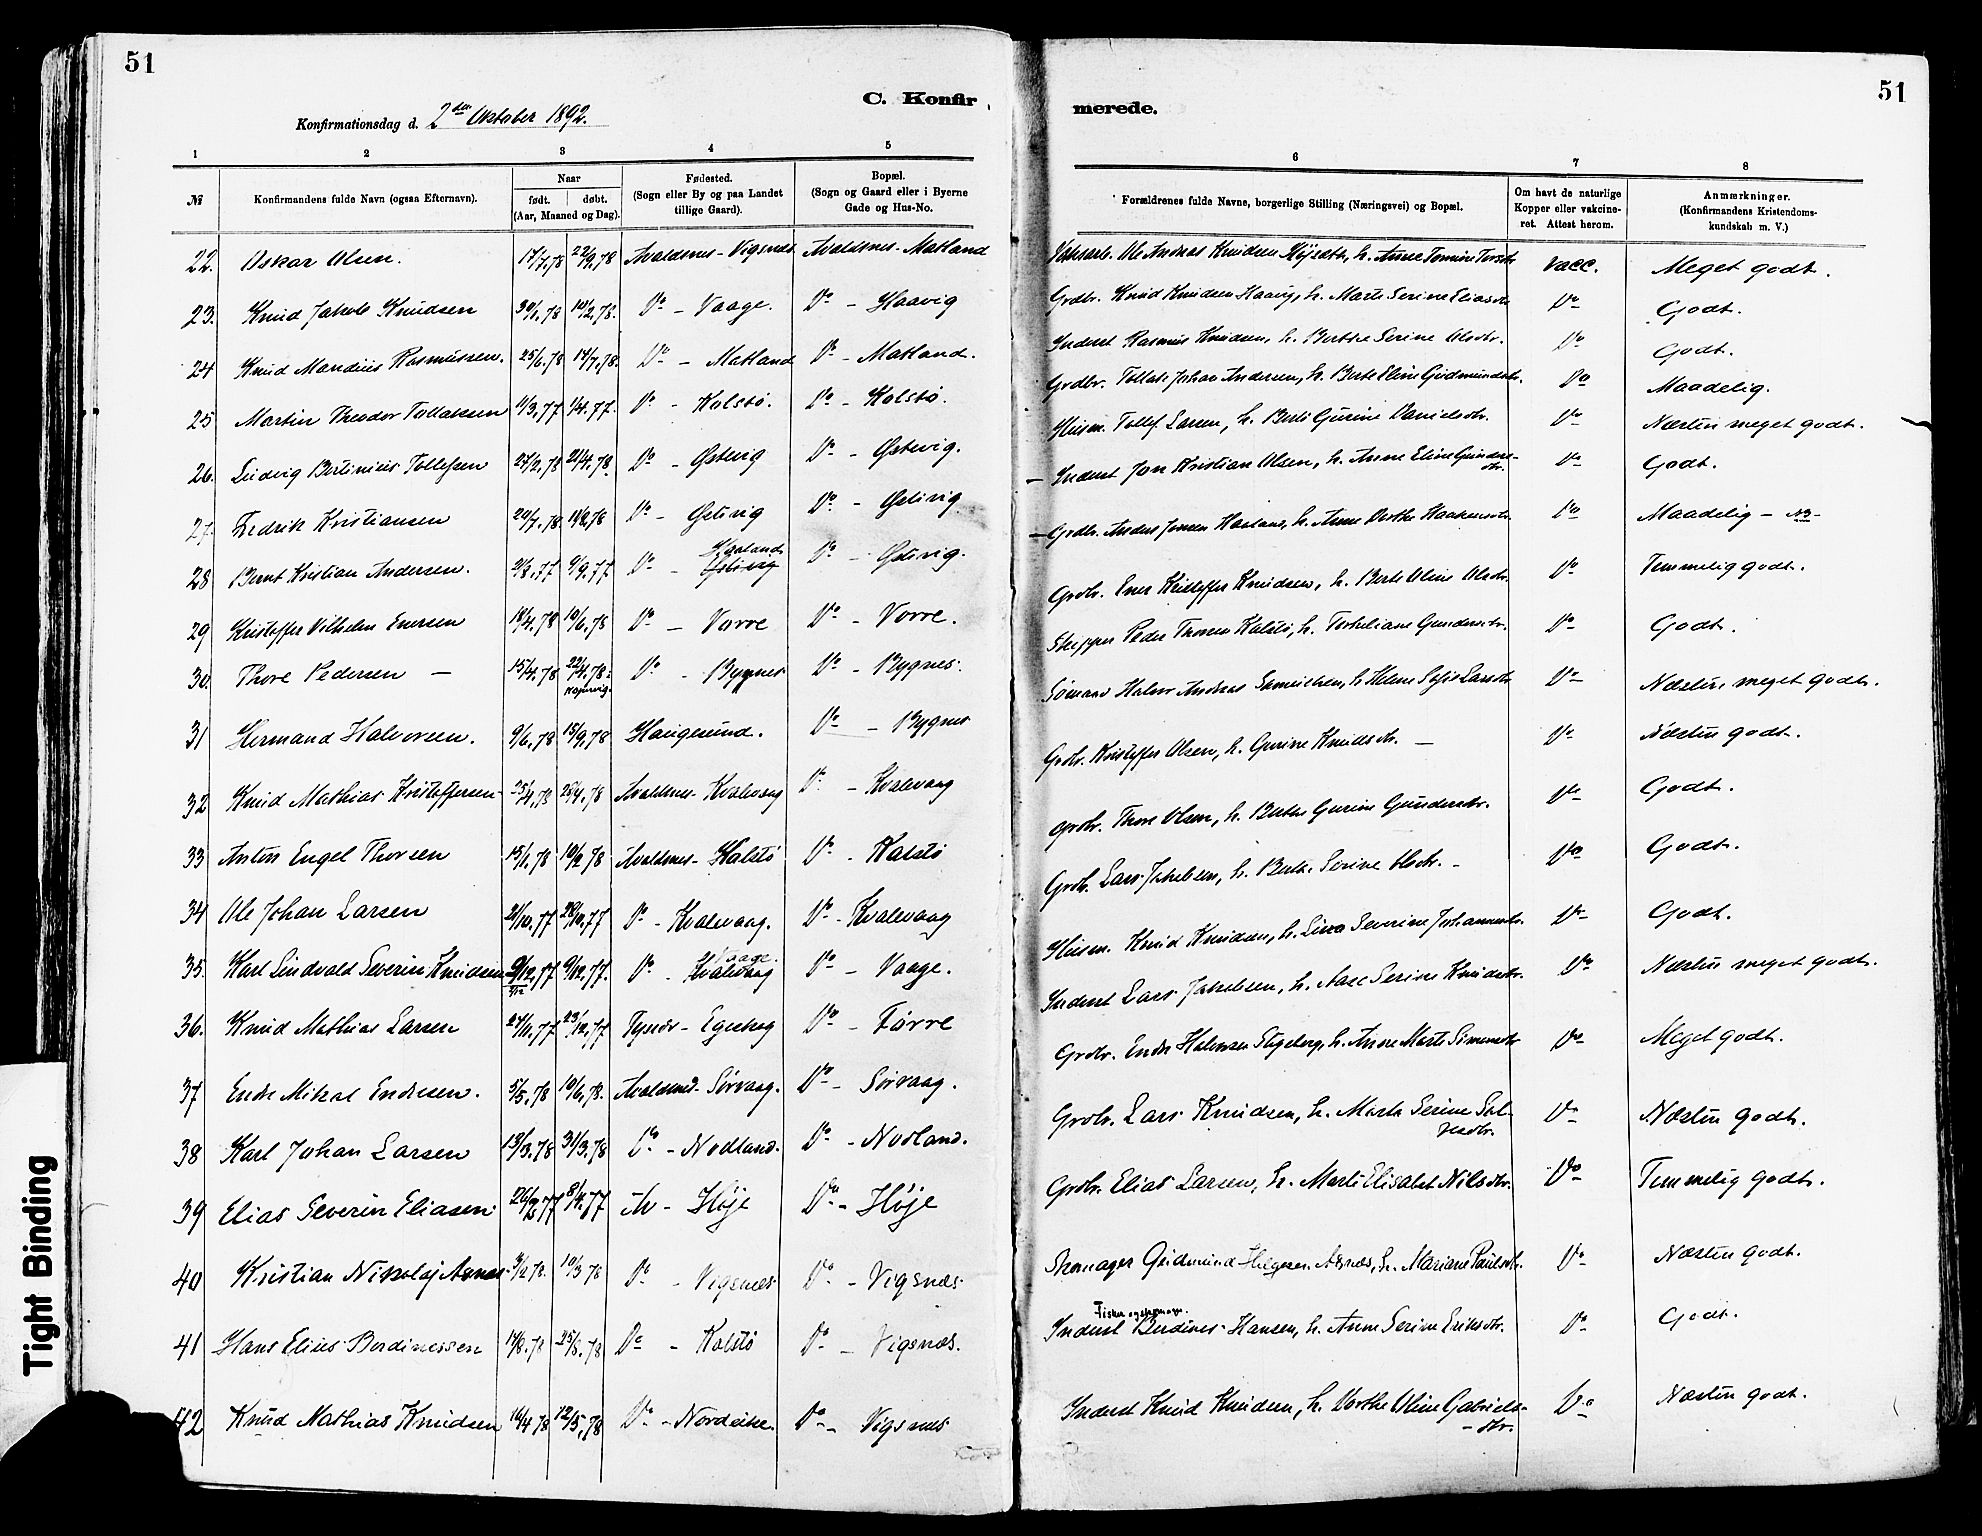 51
51
C. Konfirmerede.
Konfirmationsdag d. 2den Oktober 1892.
1 2 3 4 5 6 7 8
№ Konfirmandens fulde Navn (ogsaa Efternavn). Naar født. døbt. (Aar, Maaned og Dag). Fødested. (Sogn eller By og paa Landet tillige Gaard). Bopæl. (Sogn og Gaard eller i Byerne Gade og Hus-No. Forældrenes fulde Navne, borgerlige Stilling (Næringsvei) og Bopæl. Om havt de naturlige Kopper eller vakcineret. Attest herom. Anmærkninger. (Konfirmandens Kristendomskundskab m. V.)
22. Oskar Olsen. 17/7.78 22/9.78 Avaldsnes - Vigsnes Avaldsnes - Matland Ole Andreas Knudsen h. Anne vacc. Meget godt.
23. Knud Jakob Knudsen 30/1.78 10/2.78. Do - Vaage. Do - Haavig Grdbr. Knud Knudsen Haavig, h. Marte Serine Eliasdtr. Do Godt.
24 Knud Mandius Rasmussen. 25/6.78 14/7.78. Do - Matland Do - Matland. Inderst Rasmus Knudsen, h. Berthe Serine Olsdtr. Do Godt.
25 Martin Theodor Tollaksen 11/3.77 1/4.77. Do - Kolstø. Do - Kolstø. Grdbr. Tollak Johan Andersen, h. Berte Eline Gudmundsdtr. Do Maadelig.
26. Ludvig Bertinius Tollefsen 24/2.78 21/4.78. Do - Østevig Do - Østevig. Husm. Tollef Larsen, h. Berte Gurine Danielsdtr. Do Næsten meget godt.
27. Fedrik Kristiansen 20/7.78 11/8.78 Do - Østevig Do - Østevig. Inderst Jon Kristian Olsen, h. Anne Eline Gundersdtr. Do Godt.
28 Bernt Kristian Andersen. 2/8.77 9/9.77 Do - Østevig Haaland Do - Østevig. Grdbr. Anders Jonsen Haaland, h. Anne Dorthe Haakensdtr. Do Maadelig - NB -
29 Kristoffer Vilhelm Enersen 18/4.78 10/6.78 Do - Vorre Do - Vorre. Grdbr. Ener Kristoffer Knudsen, h. Berte Oline Olsdtr. Do Temmelig godt.
30. Thore Pedersen - 15/4.78 22/4.78. Kopervig. Do - Bygnes Do - Bygnes. Skipper Peder Thorsen Kolstø, h. Torheliane Gundersdtr. Do Godt.
31 Hermand Halvorsen. 9/6.78 15/9.78 Haugesund. Do - Bygnes Sømand Halvor Andreas Samuelsen, h. Helene Sofie Larsdtr. Do Næsten meget godt.
32 Knud Mathias Kristoffersen 25/4.78 28/4.78 Avaldsnes - Kvalevaag Do - Kvalevaag Grdbr. Kristoffer Olsen, h. Gurine Knudsdtr. - Do Næsten godt.
33 Anton Engel Thorsen 15/1.78 10/2 78 Avaldsnes - Kolstø Do - Kolstø Grdbr. Thore Olsen, h. Berthe Gurine Gundersdtr. Do Godt.
34 Ole Johan Larsen 21/10.77 28/10.77 Do - Kvalevaag. Do - Kvalevaag Grdbr. Lars Jakobsen, h. Berthe Serine Olsdtr. - Do Godt.
35. Karl Sindvald Severin Knudsen 9/12.77. Do - Kvalevaag Vaage. Do - Vaage. Husm. Knud Knudsen, h. Severine Johannesdtr. Do Godt.
36. Knud Mathias Larsen 24/11.77 23/12.77 Tysvær - Egeskog Do - Førre Inderst Lars Jakobsen, h. Aase Serine Knudsdtr. Do Næsten meget godt.
37 Endre Mikal Endresen. 5/5.78 10/6.78. Avaldsnes - Sørvaag. Do - Sørvaag. Grdbr. Endre Halvorsen h. Anne Marte Simonsdtr. Do Meget godt.
38 Karl Johan Larsen 13/3.78 31/3.78 Do - Nodland. Do - Nodland. Grdbr. Lars Knudsen, h. Marte Serine Salvesdtr. Do Næsten godt.
39 Elias Severin Eliasen. 26/3 77 8/4.77 Av - Høje Do - Høje Grdbr. Elias Larsen, h. Marte Elisabet Nilsdtr. Do Temmelig godt.
40 Kristian Nikolaj Asnæs 3/2.78. 10/3 78 Do - Vigsnæs Do - Vigsnæs Skomager Gudmund Helgesen Asnæs, h. Mariane Paulsdtr. Do Næsten godt.
41 Hans Elius Berdinessen 14/8.78 25/8.78 Do - Kolstø Do - Vigsnæs. Inderst Fisker og skomager. Berdines Hansen, h. Anne Serine Eriksdtr. Do Godt.
42 Knud Mathias Knudsen 16/4 78 12/5.78 Do - Nordeike. Do - Vigsnæs Inderst Knud Knudsen, h. Dorthe Oline Gabrielsdtr. Do Næsten godt.
Tight Binding